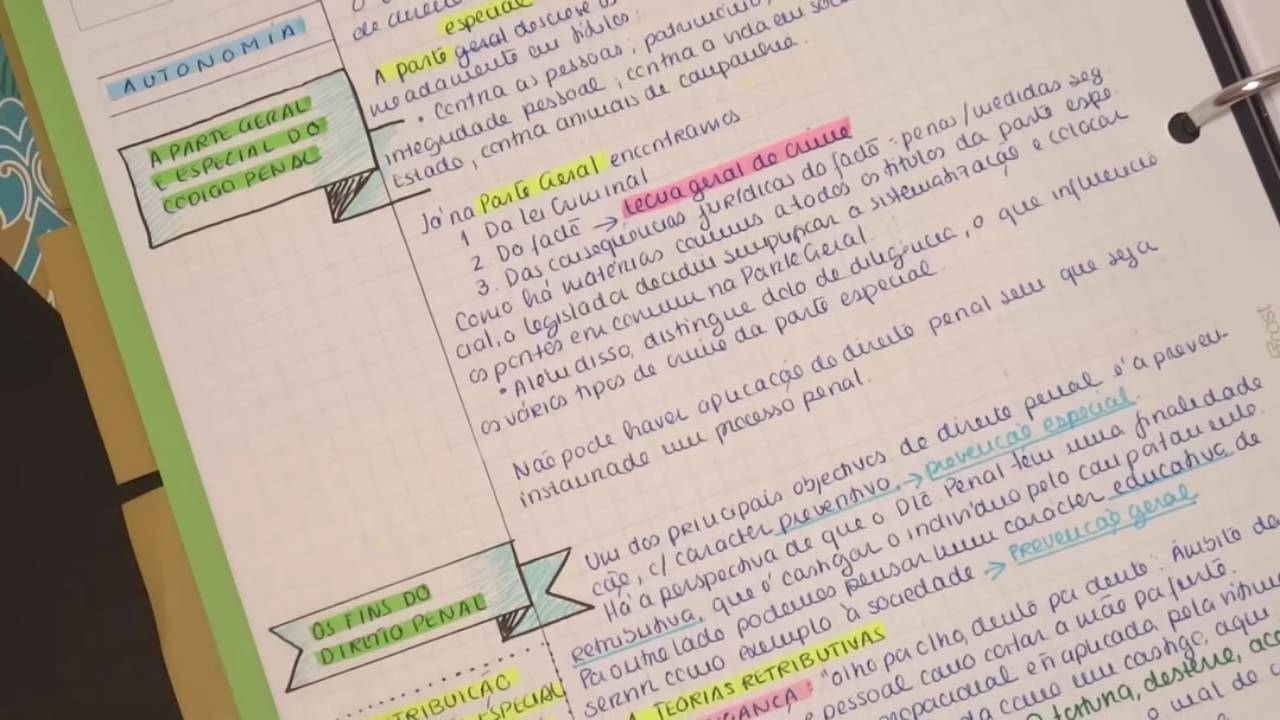 AUTONOMIA
A PARTE GERAL
E ESPECIAL DO
CÓDIGO PENAL
especial
A parte geral descreve os
meadamente em títulos:
• Contra as pessoas; património,
integridade pessoal; contra a vida em soc
Estado, contra animais de companhia.
Já na Parte Geral encontramos
1 Da lei Criminal
2 Do facto → teoria geral do crime
3. Das consequências jurídicas do facto: penas/medidas seg.
Como há matérias comuns a todos os títulos da parte espe-
cial, o legislador decidiu simplificar a sistematização e colocar
os pontos em comum na Parte Geral.
• Além disso, distingue dolo de diligência, o que influencia
os vários tipos de crime da parte especial.
Não pode haver aplicação do direito penal sem que seja
instaurado um processo penal.
OS FINS DO
DIREITO PENAL
Um dos principais objectivos do direito penal é a preven-
ção, c/ carácter preventivo. → prevenção especial.
Há a perspectiva de que o Dto Penal têm uma finalidade
retributiva, que é castigar o indivíduo pelo comportamento.
Por outro lado podemos pensar num carácter educativo, de
servir como exemplo à sociedade → prevenção geral
TEORIAS RETRIBUTIVAS
"olho por olho, dente por dente". Âmbito da
pessoal como cortar a mão por furto.
aplicada pela
como um castigo, aqui
tortura, desterro,
o mal do
TRIBUIÇÃO
ESPECIAL